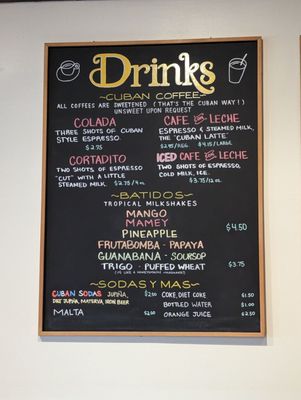 Drinks
~CUBAN COFFEE~
ALL COFFEES ARE SWEETENED (THAT'S THE CUBAN WAY!)
UNSWEET UPON REQUEST
COLADA
THREE SHOTS OF CUBAN
STYLE ESPRESSO.
$2.75
CAFE con LECHE
ESPRESSO & STEAMED MILK,
THE "CUBAN LATTE"
$2.95/REG. $4.15/LARGE
CORTADITO
TWO SHOTS OF ESPRESSO
"CUT" WITH A LITTLE
STEAMED MILK. $2.75/4oz.
ICED CAFE con LECHE
TWO SHOTS OF ESPRESSO,
COLD MILK, ICE.
$3.75/12oz.
~BATIDOS~
TROPICAL MILKSHAKES
MANGO
MAMEY
PINEAPPLE
$4.50
FRUTABOMBA - PAPAYA
GUANABANA - SOURSOP
TRIGO - PUFFED WHEAT $3.75
~SODAS Y MAS~
CUBAN SODAS JUPIÑA, $2.00
DIET JUPIÑA, MATERVA, IRON BEER
MALTA $2.00
COKE, DIET COKE $1.50
BOTTLED WATER $1.00
ORANGE JUICE $2.50